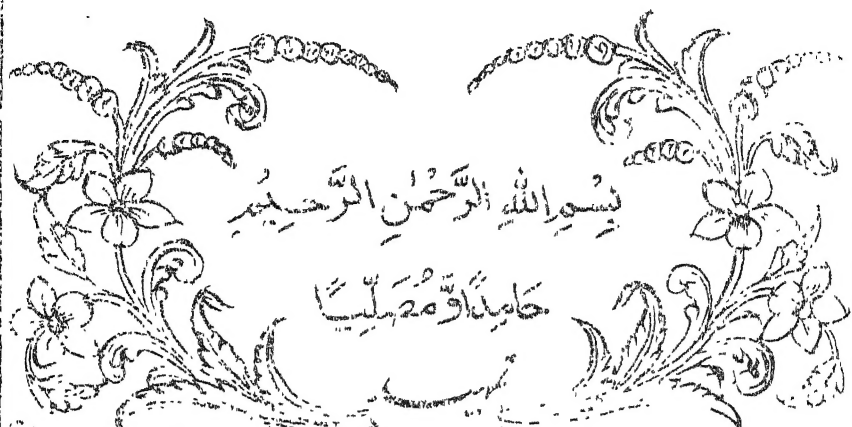 بِسْمِ اللّٰهِ الرَّحْمٰنِ الرَّحِیْمِ
حَامِدًا وَّمُصَلِّیًا